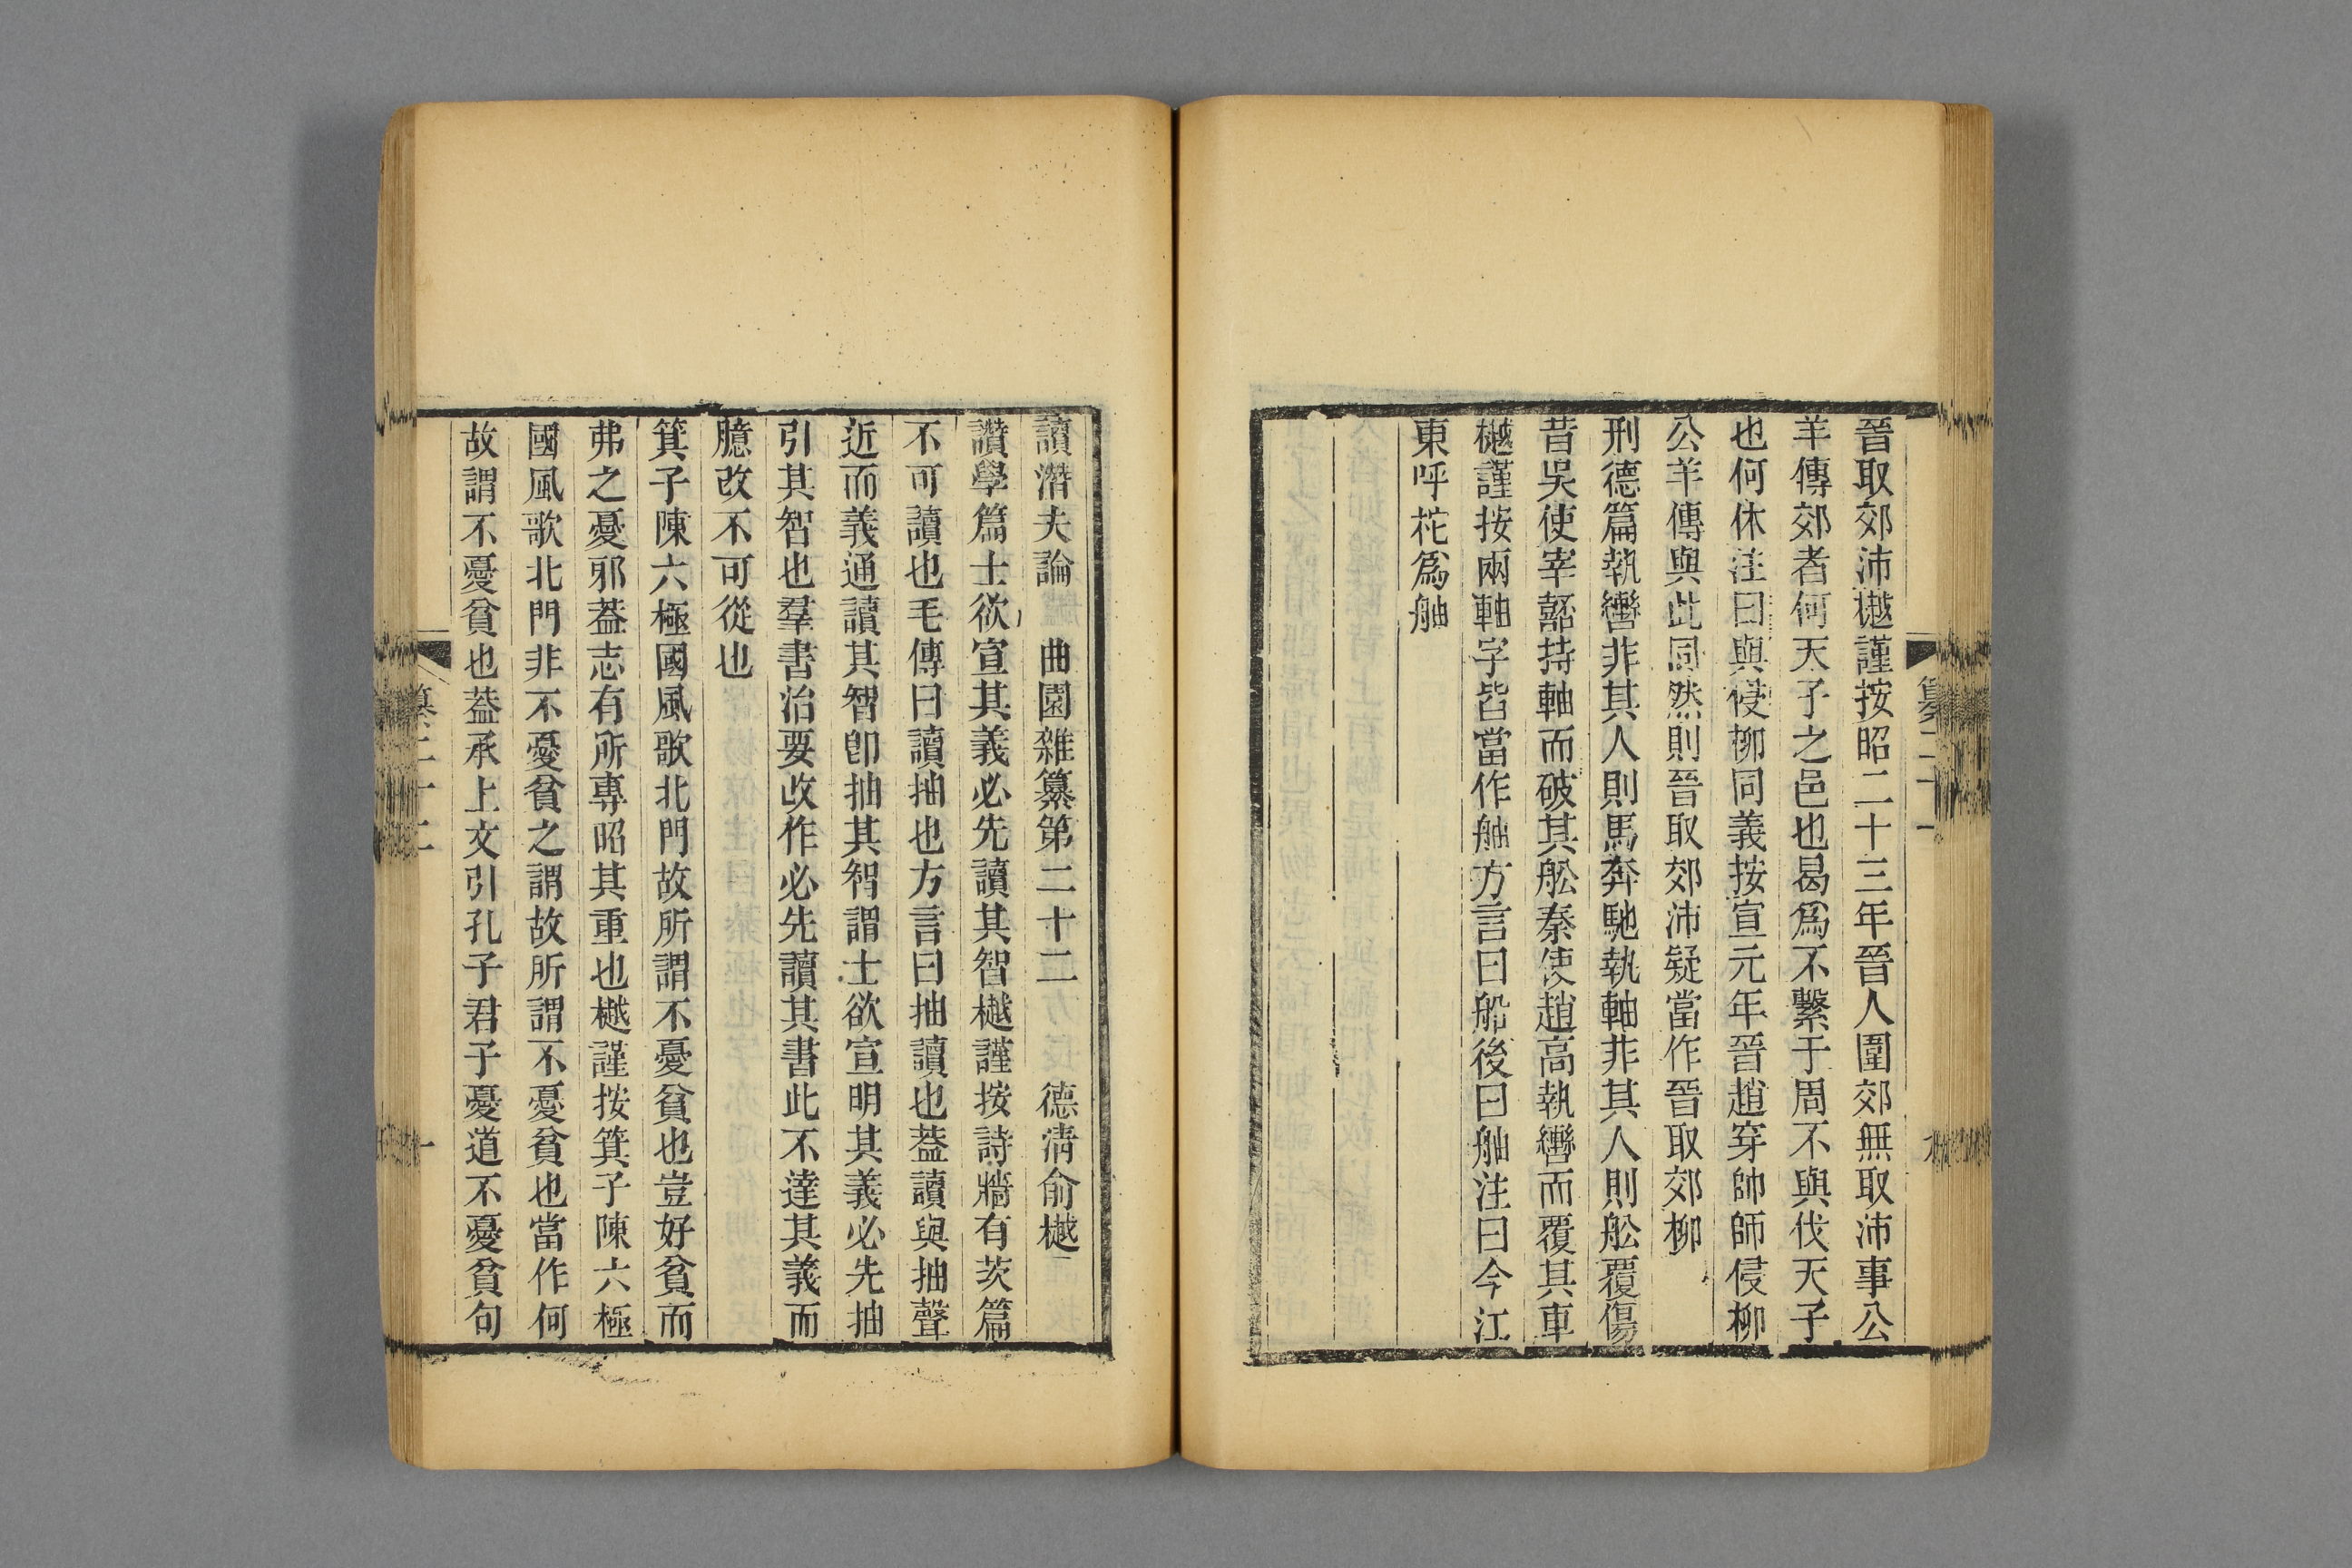 晉取郊沛樾謹按昭二十三年晉人圍郊無取沛事公
羊傳郊者何天子之邑也曷爲不繫于周不與伐天子
也何休注曰與侵柳同義按宣元年晉趙穿帥師侵柳
公羊傳與此同然則晉取郊沛疑當作晉取郊柳
刑德篇執轡非其人則馬奔馳執軸非其人則舩覆傷
昔吳使宰嚭持軸而破其舩秦使趙高執轡而覆其車
樾謹按兩軸字皆當作舳方言曰船後曰舳注曰今江
東呼柁爲舳
讀潛夫論　曲園雜纂第二十二　德清俞樾
讚學篇士欲宣其義必先讀其智樾謹按詩牆有茨篇
不可讀也毛傳曰讀抽也方言曰抽讀也葢讀與抽聲
近而義通讀其智卽抽其智謂士欲宣明其義必先抽
引其智也羣書治要改作必先讀其書此不達其義而
臆改不可從也
箕子陳六極國風歌北門故所謂不憂貧也豈好貧而
弗之憂邪葢志有所專昭其重也樾謹按箕子陳六極
國風歌北門非不憂貧之謂故所謂不憂貧也當作何
故謂不憂貧也葢承上文引孔子君子憂道不憂貧句
纂二十二
一